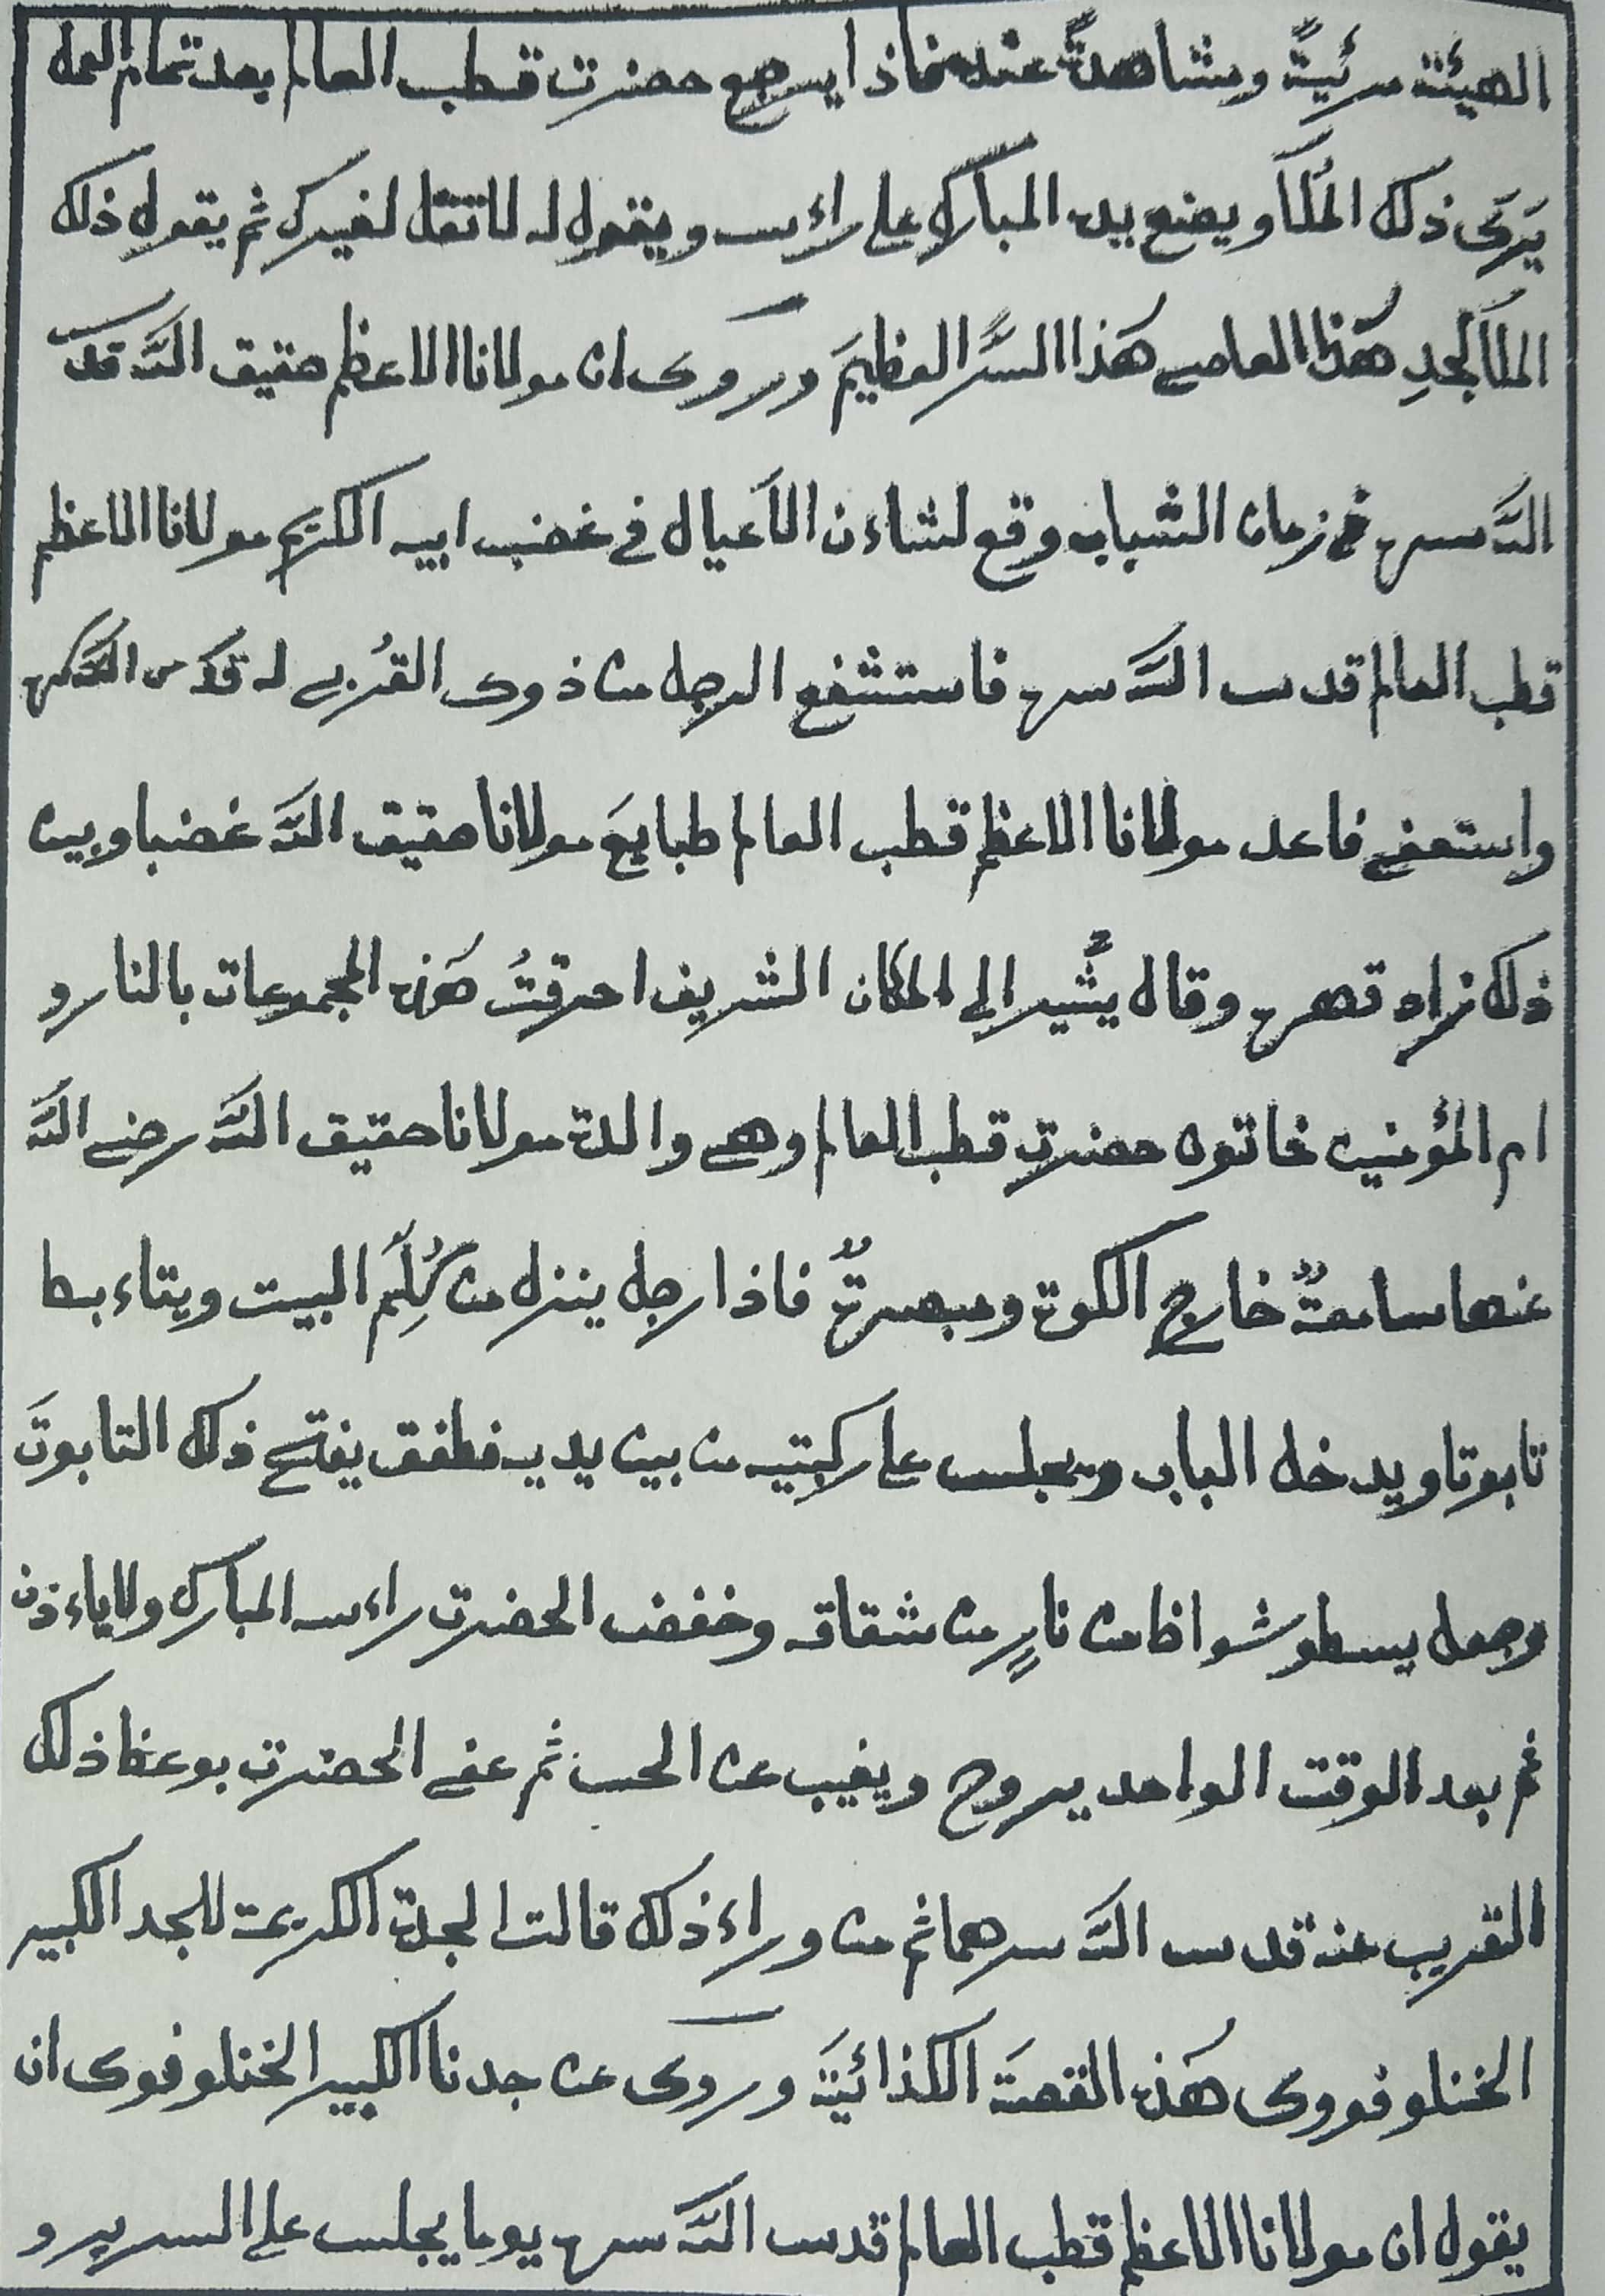 الهيئة مرئيةً ومشاهدةً عنده فاذا يرجع حضرت قطب العالم بعد تمام العمل
يَرَى ذلك المُلَّا ويضع يده المبارك على راءسه ويقول له لا تقل لغيرك ثم يقول ذلك
الملا لجدِ هَذا العاصى هَذا السَّر العظيمَ وروى ان مولانا الاعظم حقيق اللّه قدس
اللّه سره فى زمان الشباب وقع لشاءن الاَعيال فى غضب ابيه الكريم مولانا الاعظم
قطب العالم قدس اللّه سره فاستشفع الرجل من ذوى القُربى له قدس اللّه سره
واستعفى فاعد مولانا الاعظم قطب العالم طبايعَ مولانا حقيق اللّه غضبا وبين
ذلك زاد قهره وقال يشُير الى المكان الشريف احرقتُ هَذه المجموعات بالنار و
ام المؤمنين خاتون حضرت قطب العالم وهى والدة مولانا حقيق اللّه رضى اللّه
عنها سامعةٌ خارج الكوة ومبصرةٌ فاذا رجل ينزل من كُلِّم البيت ويتاءبط
تابوتا ويدخل الباب ويجلس على ركبتيه من بين يديه فطفق يفتح ذلك التابوتَ
وجعل يسطو شواظا من نارٍ من شقاقه وخفض الحضرت راءسه المبارك ولا ياءذن
ثم بعد الوقت الواحد يروح ويغيب عن الحس ثم عفى الحضرت بوعظ ذلك
القريب عنه قدس اللّه سرهما ثم من وراء ذلك قالت الجدة الكريمة للجد الكبير
الخنلوفووى هَذه القصةَ الكذائيَة وروى عن جدنا الكبير الخنلوفوى ان
يقول ان مولانا الاعظم قطب العالم قدس اللّه سره يوما يجلس على السرير و